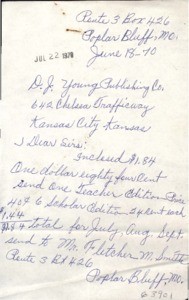 Route 3 Box 426
Poplar Bluff, Mo.
June 18-70
JUL 22 1970
D. J. Young Publishing Co.
642 Chelsea Trafficway
Kansas City Kansas
Dear Sirs:
Inclosed $1.84
One dollar eighty four cent
Send One Teacher Edition
6 Scholar Edition 24 cent each
1.44
$1.84 total for July, Aug, Sept.
send to Mr. Fletcher M. Smith
Route 3 Box 426
Poplar Bluff, Mo.
63901